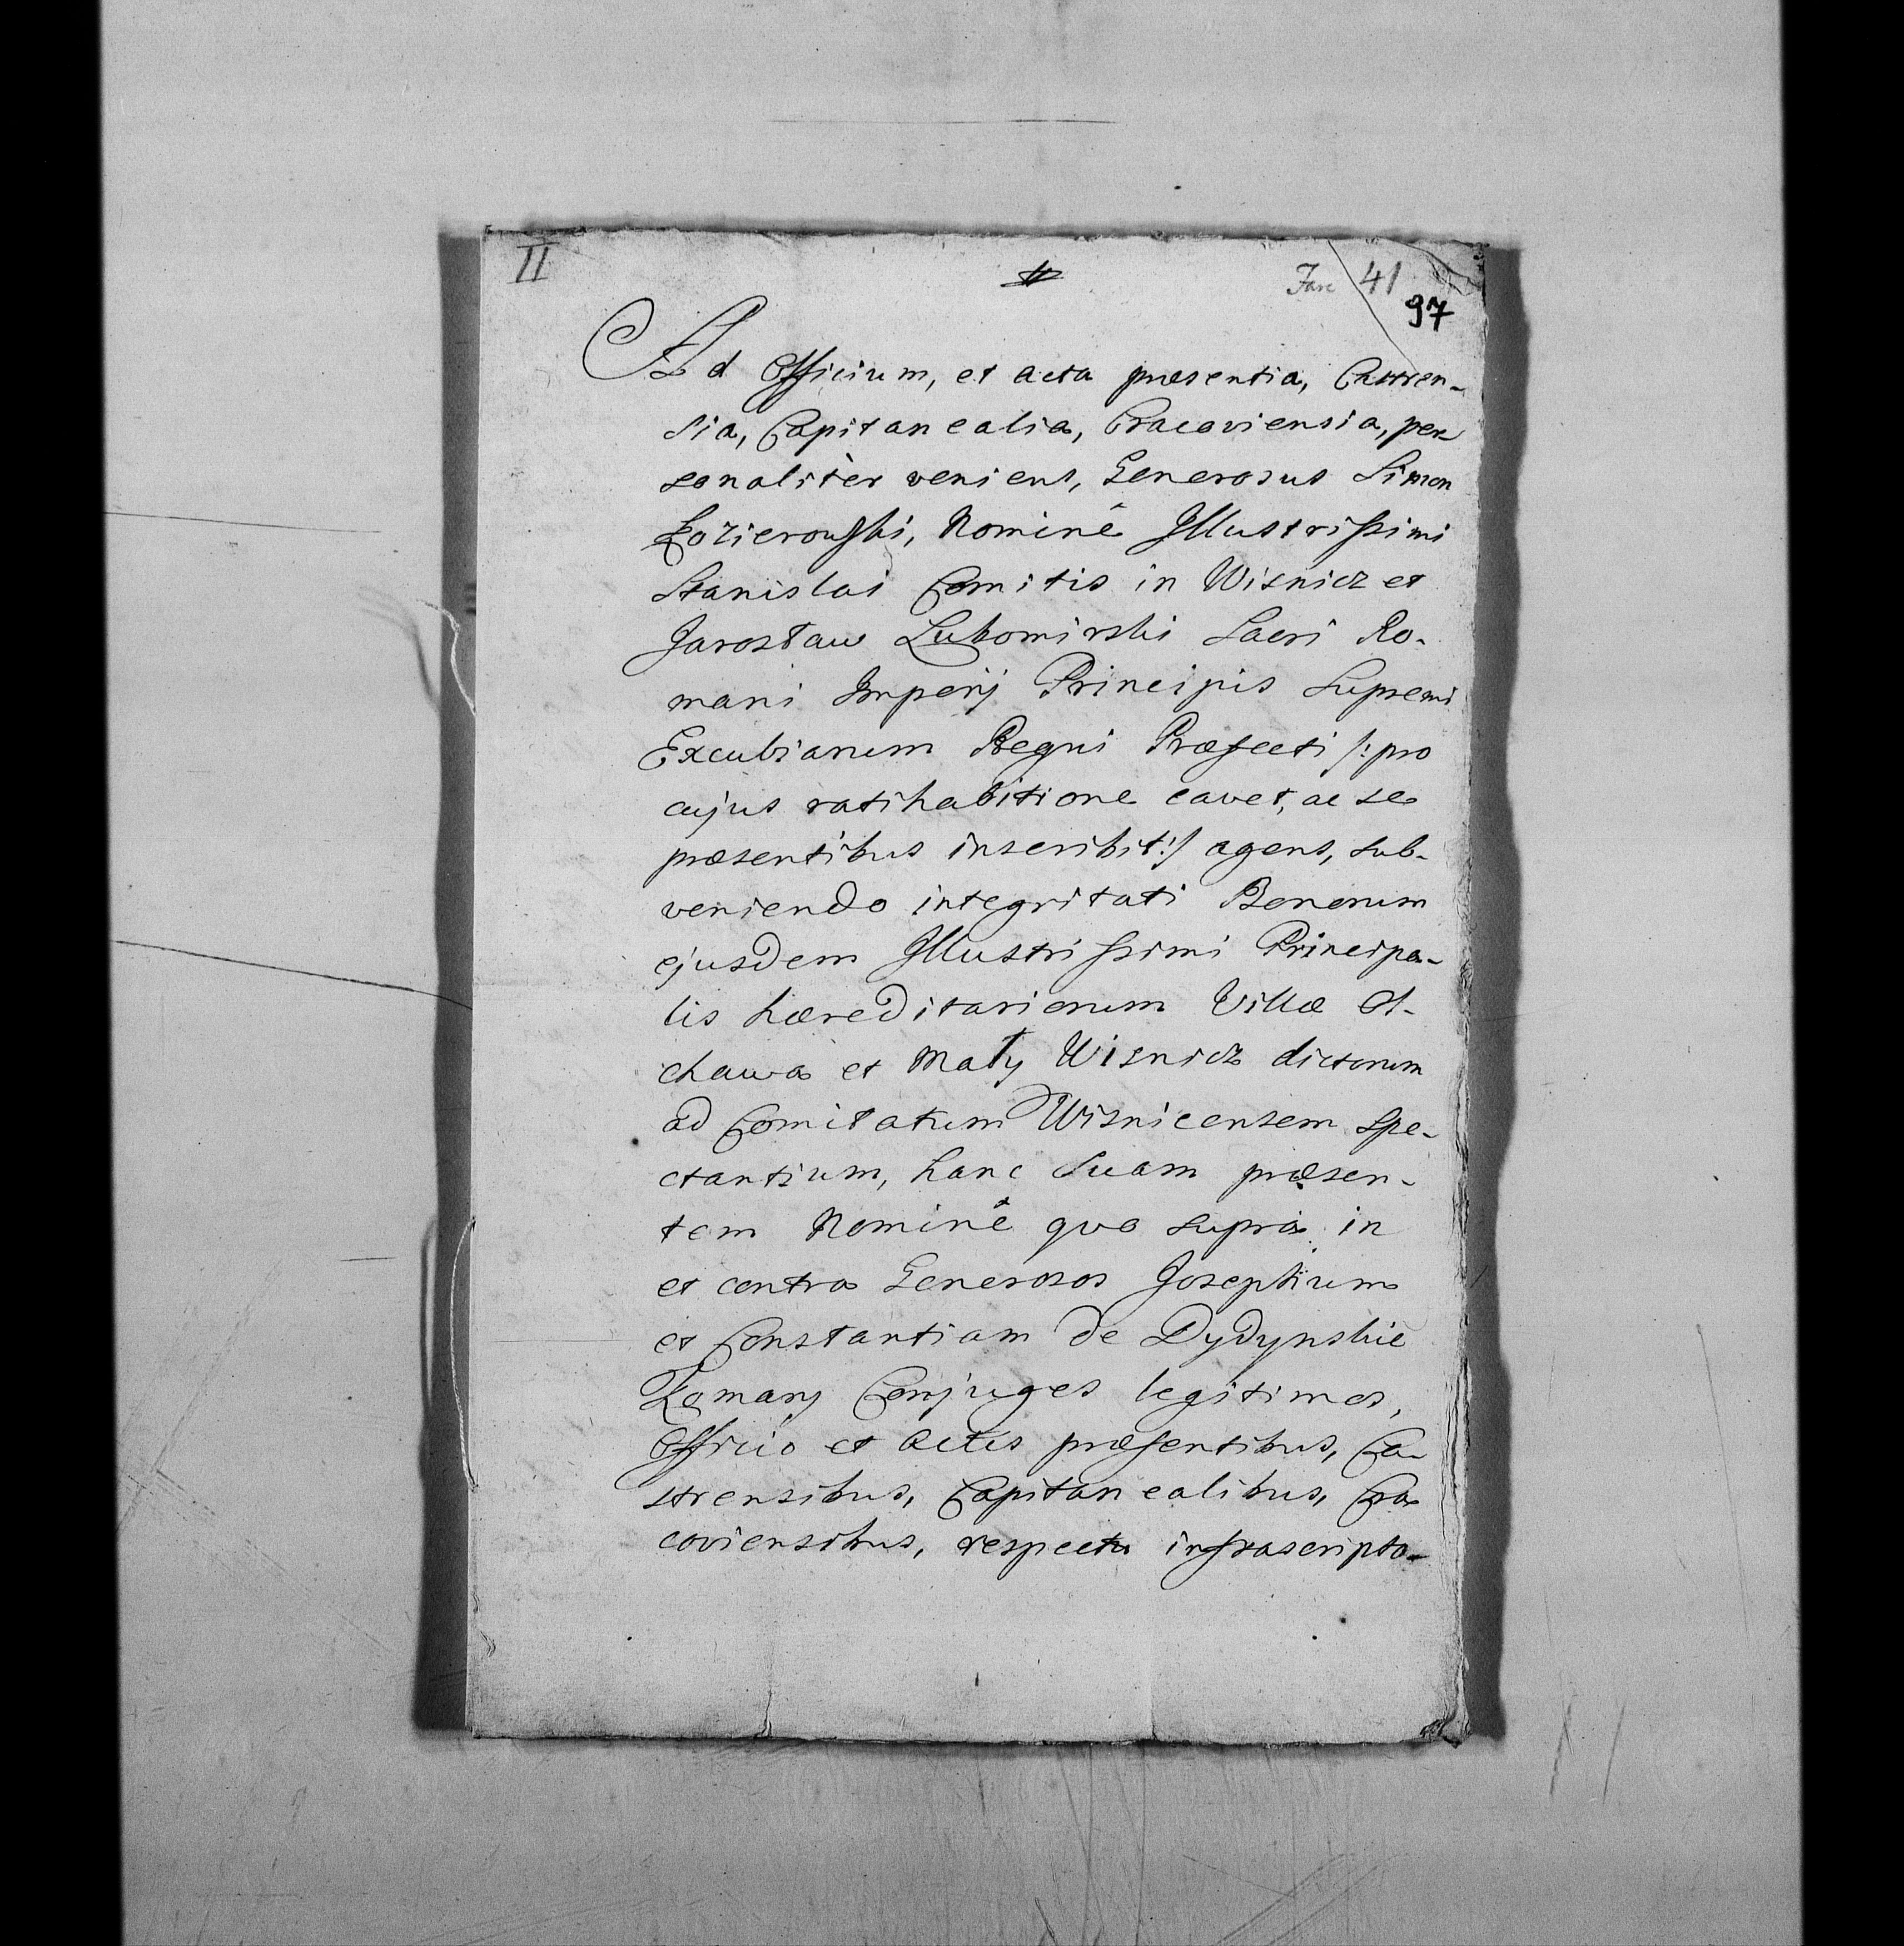 II
Fasc 41
97
Ad Officium, et acta præsentia, Castren-
sia, Capitanealia, Cracoviensia, per-
sonalitèr veniens, Generosus Simon
Kozierowski, Nominê Illustrissimi
Stanislai Comitis in Wisnicz et
Jarosław Lubomirski Sacri Ro-
mani Imperij Principis Supremi
Excubiarum Regni Præfecti /: pro
cujus ratihabitione cavet, ac se
præsentibus inscribit :/ agens, sub-
veniendo integritati Bonorum
ejusdem Illustrissimi Principa-
lis hæreditariorum Villæ Ol-
chawa et Mały Wisnicz dictorum
ad Comitatum Wisnicensem spe-
ctantium, hanc suam præsen-
tem Nominê quo supra in
et contra Generosos Josephum
et Constantiam de Dydynskie
Komary Conjuges legitimos,
Officio et Actis præsentibus, Ca-
strensibus, Capitanealibus, Cra-
coviensibus, respectu infrascripto-